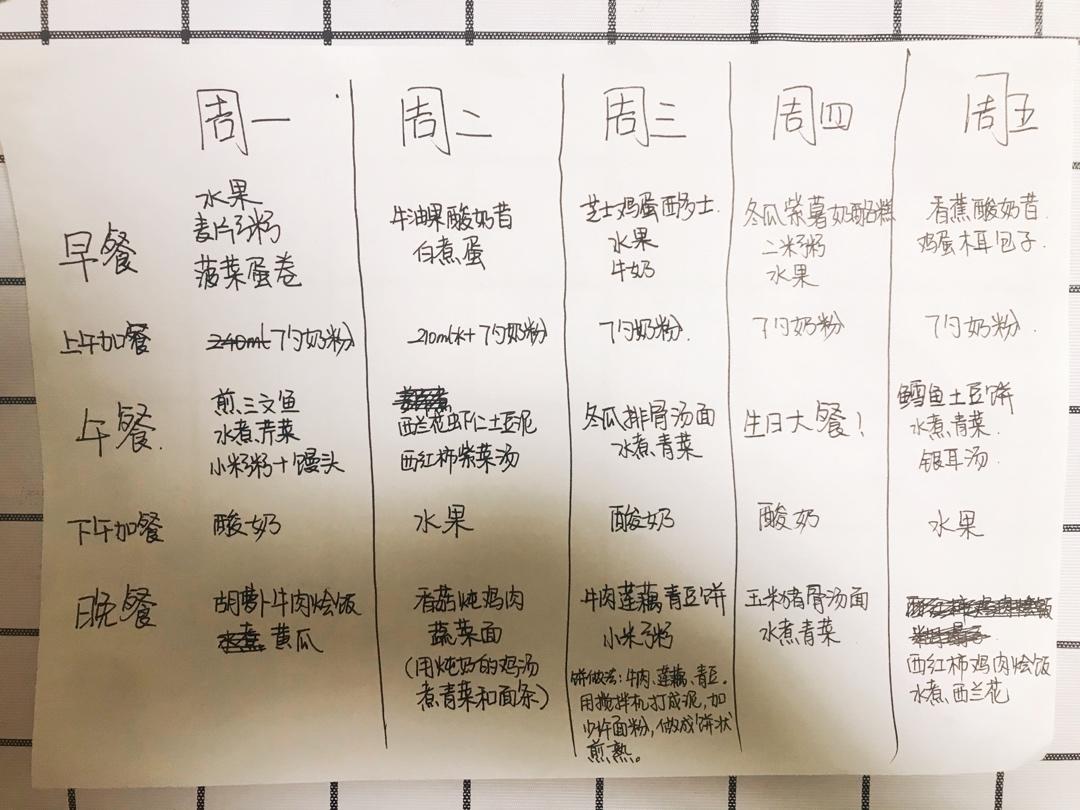 周一 周二 周三 周四 周五
早餐
水果
麦片粥
菠菜蛋卷
牛油果酸奶昔
白煮蛋
芝士鸡蛋西多士
水果
牛奶
冬瓜紫薯奶酪糕
二米粥
水果
香蕉酸奶昔.
鸡蛋木耳包子.
上午加餐
240ml 7勺奶粉
210ml水+7勺奶粉
7勺奶粉.
7勺奶粉
7勺奶粉.
午餐.
煎三文鱼
水煮芹菜
小米粥+馒头
西兰花虾仁土豆泥
西红柿紫菜汤
冬瓜排骨汤面
水煮青菜
生日大餐!
鳕鱼土豆饼
水煮青菜.
银耳汤.
下午加餐
酸奶
水果
酸奶
酸奶
水果
晚餐
胡萝卜牛肉烩饭
水煮黄瓜
香菇炖鸡肉
蔬菜面
(用炖奶的鸡汤
煮青菜和面条)
牛肉莲藕青豆饼
小米粥
饼做法:牛肉、莲藕、青豆.
用搅拌机打成泥,加
少许面粉,做成饼状
煎熟。
玉米猪骨汤面
水煮青菜
西红柿鸡肉烩饭
水煮西兰花